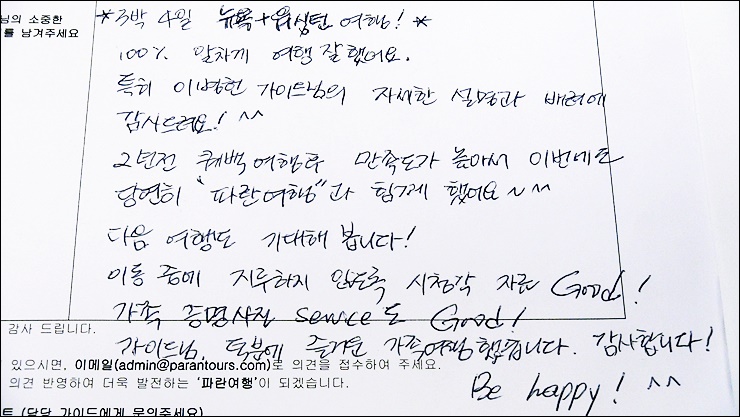 님의 소중한
를 남겨주세요
*3박 4일 뉴욕+워싱턴 여행! *
100% 알차게 여행 잘 했어요.
특히 이병헌 가이드님의 자세한 설명과 배려에
감사드려요! ^^
2년전 퀘백 여행후 만족도가 높아서 이번에도
당연히 "파란여행"과 함께 했어요~ ^^
다음 여행도 기대해 봅니다!
이동 중에 지루하지 않도록 시청각 자료 Good!
가족 증명사진 service도 Good!
감사 드립니다.
가이드님, 덕분에 즐거운 가족여행 했습니다. 감사합니다!
있으시면, 이메일(admin@parantours.com)로 의견을 접수하여 주세요.
의견 반영하여 더욱 발전하는 '파란여행'이 되겠습니다.
Be happy! ^^
트 (담당 가이드에게 문의주세요)